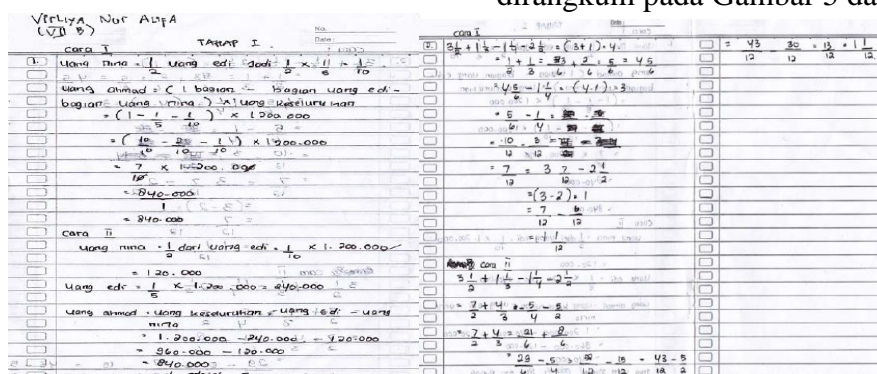 dirangkum pada Gambar 3 da
VERLIYA NUR ALIFA
(VII B)
No.
Date:
TAHAP I.
cara I
1. Uang nina = 1/2 uang edi jadi 1/2 × 1/5 = 1/10
Uang ahmad = (1 bagian - bagian uang edi -
bagian uang nina) × uang keseluruhan
= (1 - 1/5 - 1/10) × 1.200.000
= (10/10 - 2/10 - 1/10) × 1.200.000
= 7/10 × 1.200.000
= 840.000
1
= 840.000
cara II
uang nina = 1/2 dari uang edi = 1/10 × 1.200.000
= 120.000
uang edi = 1/5 × 1.200.000 = 240.000
uang ahmad = uang keseluruhan - uang edi - uang
nina
= 1.200.000 - 240.000 - 120.000
= 960.000 - 120.000
= 840.000
Date:
cara I
2. 3 1/2 + 1 1/3 - 1 1/4 - 2 1/2 = (3+1) = 4
= 1/2 + 1/3 = 3/6 + 2/6 = 5/6 = 4 5/6
= 4 5/6 - 1 1/4 = (4-1) = 3
= 5/6 - 1/4 =
= 10/12 - 3/12 =
= 7/12 = 3 7/12 - 2 1/2
= (3-2) = 1
= 7/12 - 6/12
= 1 1/12
cara II
3 1/2 + 1 1/3 - 1 1/4 - 2 1/2
= 7/2 + 4/3 - 5/4 - 5/2
= 7/2 + 4/3 = 21/6 + 8/6
= 29/6 - 5/4 = 58/12 - 15/12 = 43/12 - 5/2
= 43/12 - 30/12 = 13/12 = 1 1/12